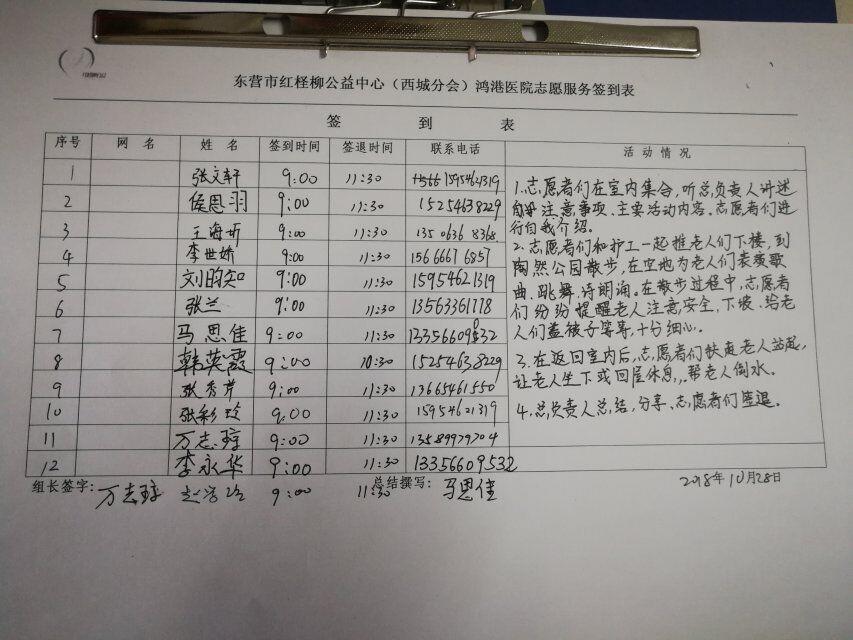 东营市红柽柳公益中心（西城分会）鸿港医院志愿服务签到表
签 到 表
序号 网 名 姓 名 签到时间 签退时间 联系电话 活 动 情 况
1 张文轩 9:00 11:30 15954621319
2 侯思羽 9:00 11:30 15254638229
3 王海昕 9:00 11:30 13506368368
4 李世娇 9:00 11:30 15666676857
5 刘昀知 9:00 11:30 15954621319
6 张兰 9:00 11:30 13563361118
7 马思佳 9:00 11:30 13356609532
8 韩英霞 9:00 10:30 15254638229
9 张秀芹 9:00 11:30 13665461550
10 张彩玲 9:00 11:30 15954621319
11 万志琼 9:00 11:30 13589979704
12 李永华 9:00 11:30 13356609532
1.志愿者们在室内集合，听总负责人讲述
注意事项、主要活动内容。志愿者们进
行自我介绍。
2.志愿者们和护工一起推老人们下楼，到
陶然公园散步，在空地为老人们表演歌
曲、跳舞、诗朗诵。在散步过程中，志愿者
们纷纷提醒老人注意安全，下坡、给老
人们盖被子等等，十分细心。
3.在返回室内后，志愿者们扶老人站起，
让老人坐下或回屋休息，帮老人倒水。
4.总负责人总结，分享、志愿者们签退。
组长签字：万志琼 9:00 11:30 总结撰写：马思佳 2018年10月28日